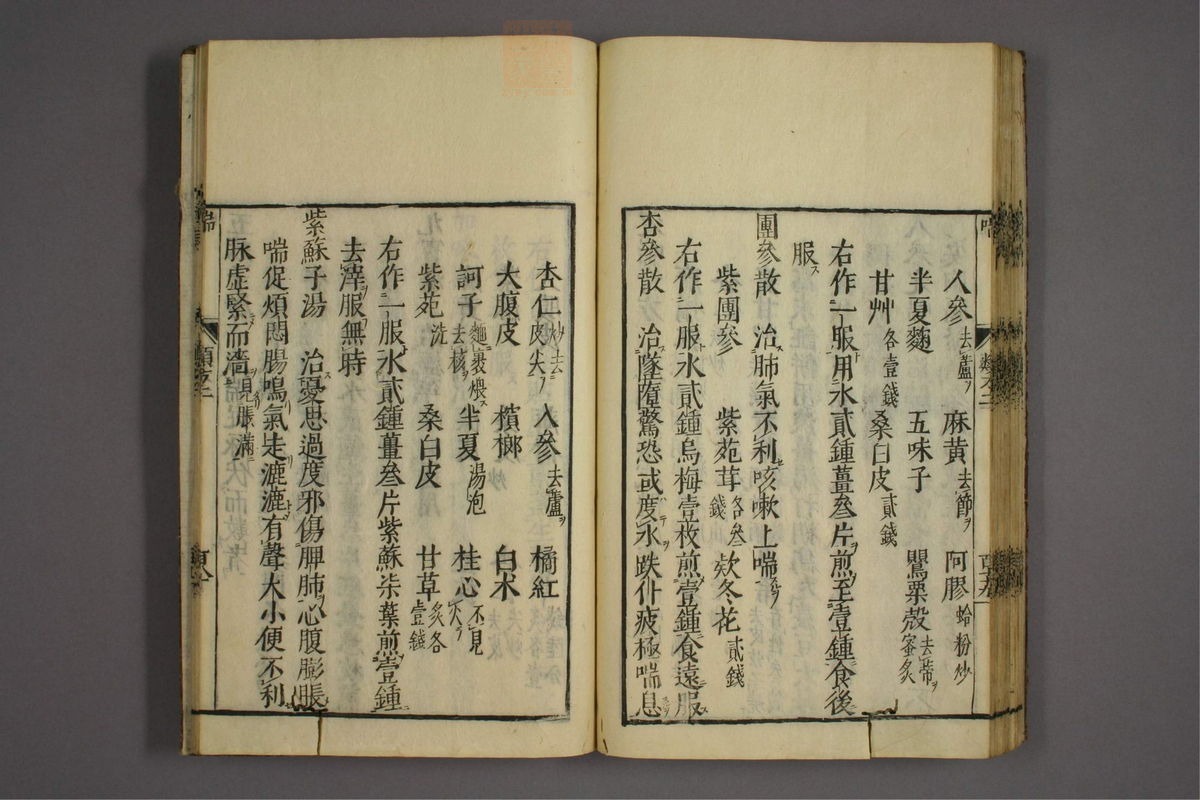 人參去蘆ヲ 麻黃去節ヲ 阿膠蛤粉炒
半夏麯 五味子 罌粟殼去蒂ヲ蜜炙
甘艸各壹錢 桑白皮貳錢
右作一服用水貳鍾薑叁片煎至壹鍾食後
服ス
團參散 治肺氣不利咳嗽上喘
紫團參 紫菀茸各叁錢 欵冬花貳錢
右作一服水貳鍾烏梅壹枚煎壹鍾食遠服
杏參散 治墜墮驚恐或度水跌仆疲極喘息
杏仁炒去皮尖 人參去蘆ヲ 橘紅
大腹皮 檳榔 白朮
訶子麵裹煨去核 半夏湯泡 桂心不見火
紫菀洗 桑白皮 甘草炙各壹錢
右作一服水貳鍾薑叁片紫蘇柒葉煎壹鍾
去滓服無時
紫蘇子湯 治憂思過度邪傷脾肺心腹膨脹
喘促煩悶腸鳴氣走漉漉有聲大小便不利
脉虛緊而濇 脹滿
喘